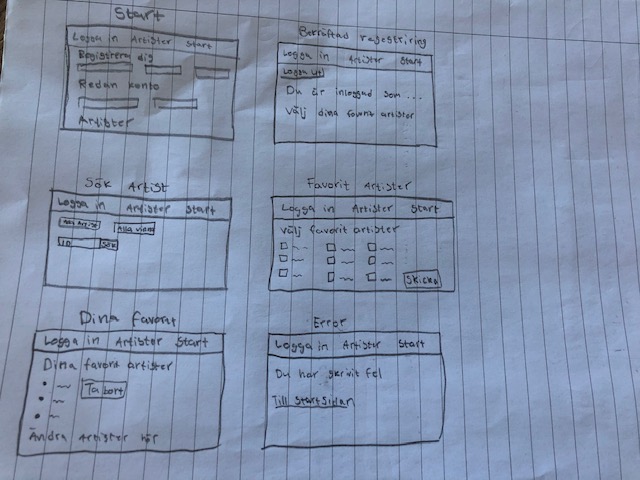 Start
Logga in Artister Start
Registrera dig
Redan konto
Artister
Bekräftad registrering
Logga in Artister Start
Logga ut
Du är inloggad som ...
Välj dina favorit artister
Sök Artist
Logga in Artister Start
Sök
Favorit Artister
Logga in Artister Start
Välj favorit artister
Skicka
Dina favorit
Logga in Artister Start
Dina favorit artister
Ta bort
Ändra artister här
Error
Logga in Artister Start
Du har skrivit fel
Till startsidan